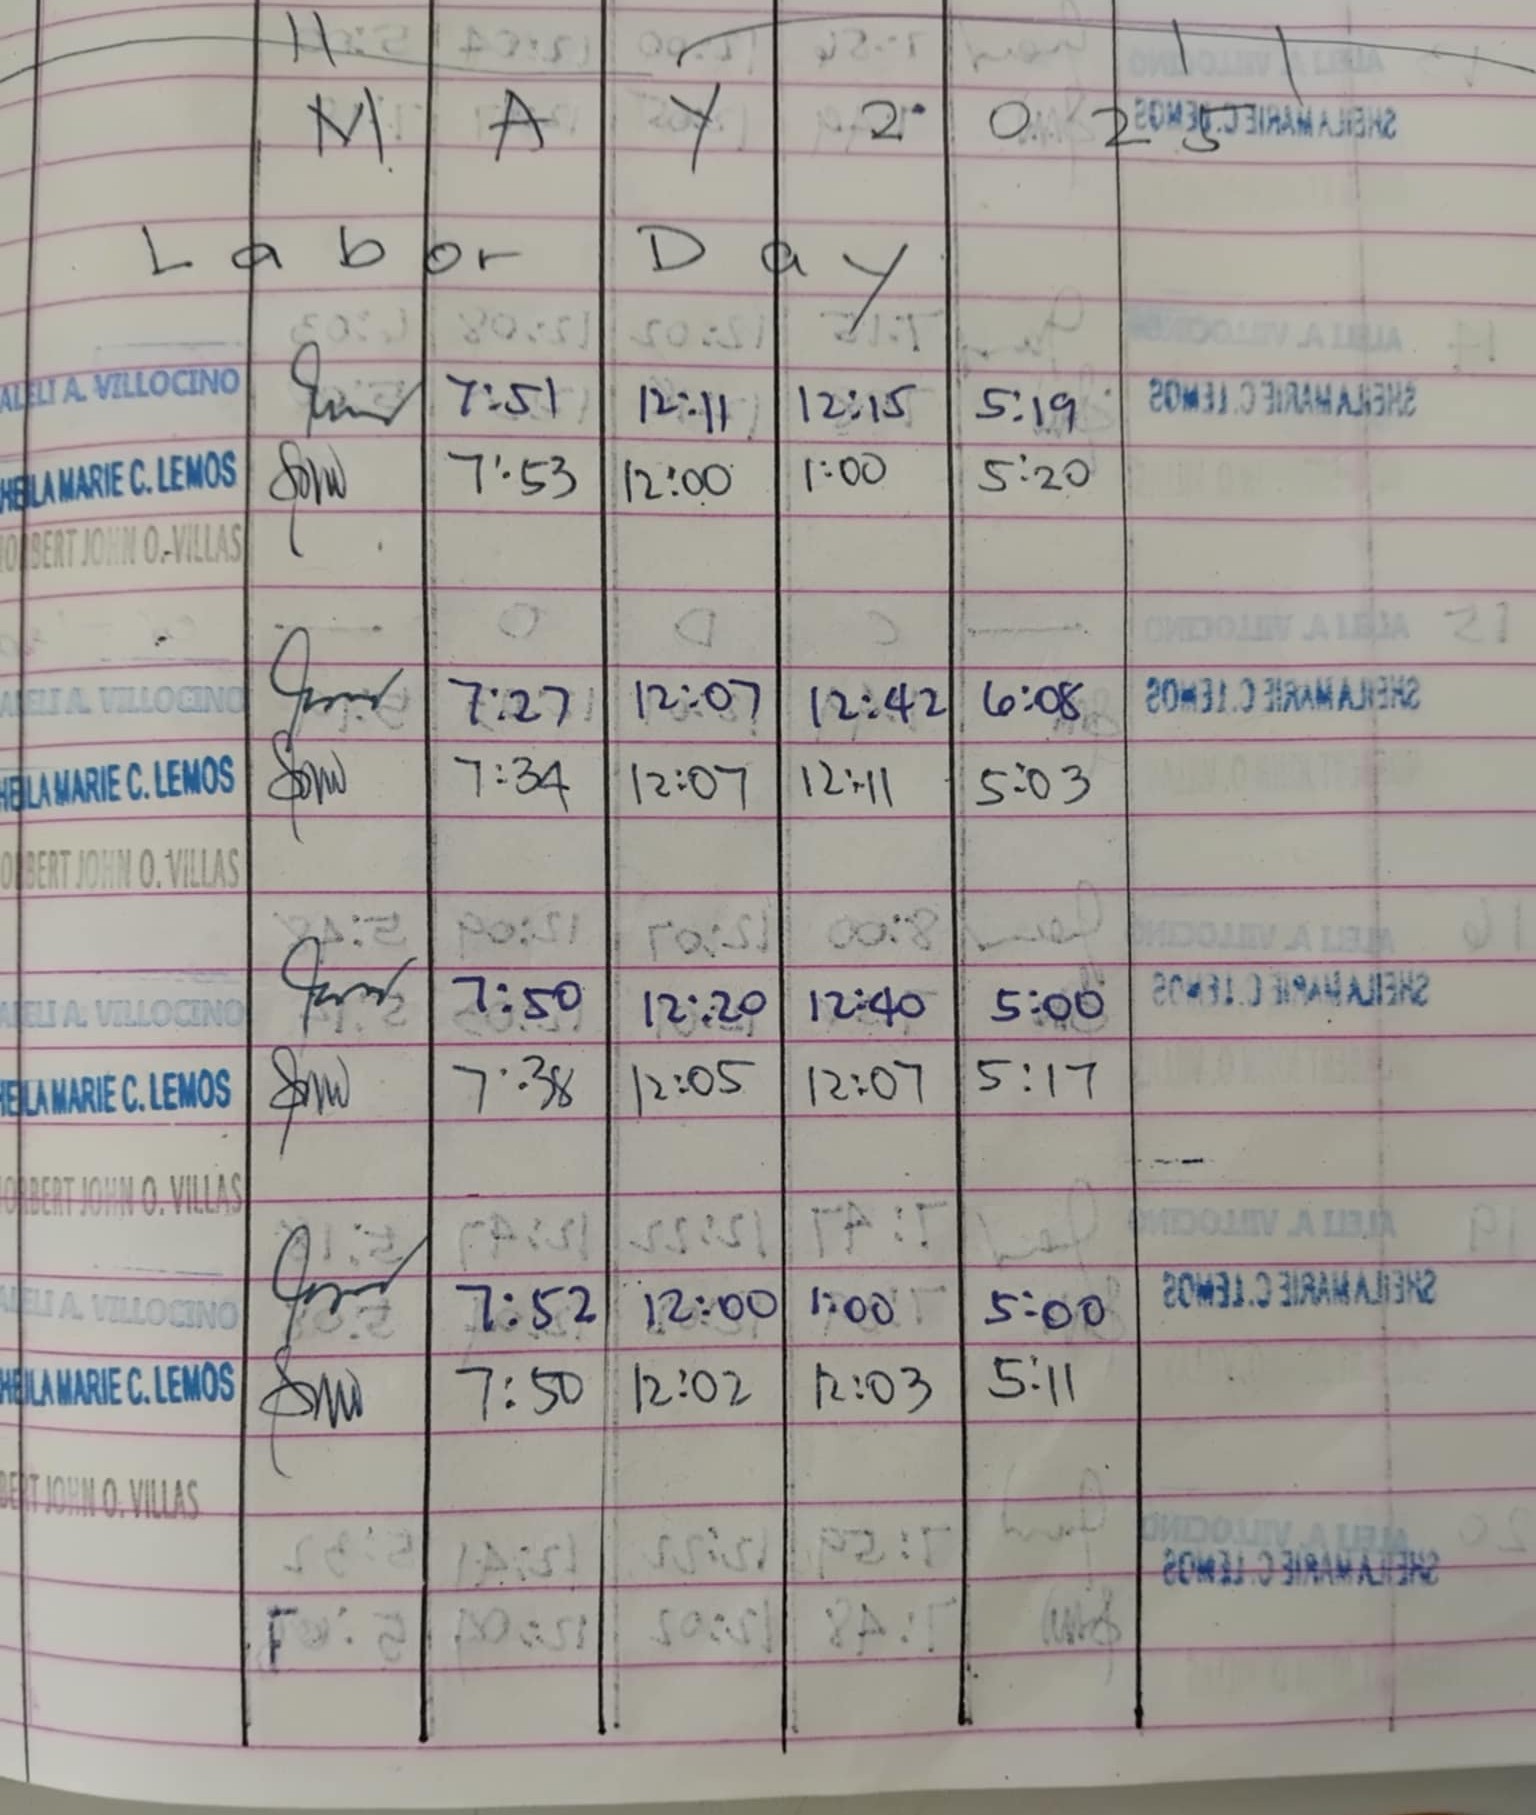 MAY 2025
Labor Day
ALELI A. VILLOCINO 7:51 12:11 12:15 5:19
SHEILA MARIE C. LEMOS 7:53 12:00 1:00 5:20
NORBERT JOHN O. VILLAS
ALELI A. VILLOCINO 7:27 12:07 12:42 6:08
SHEILA MARIE C. LEMOS 7:34 12:07 12:11 5:03
NORBERT JOHN O. VILLAS
ALELI A. VILLOCINO 7:50 12:20 12:40 5:00
SHEILA MARIE C. LEMOS 7:38 12:05 12:07 5:17
NORBERT JOHN O. VILLAS
ALELI A. VILLOCINO 7:52 12:00 1:00 5:00
SHEILA MARIE C. LEMOS 7:50 12:02 12:03 5:11
BERT JOHN O. VILLAS